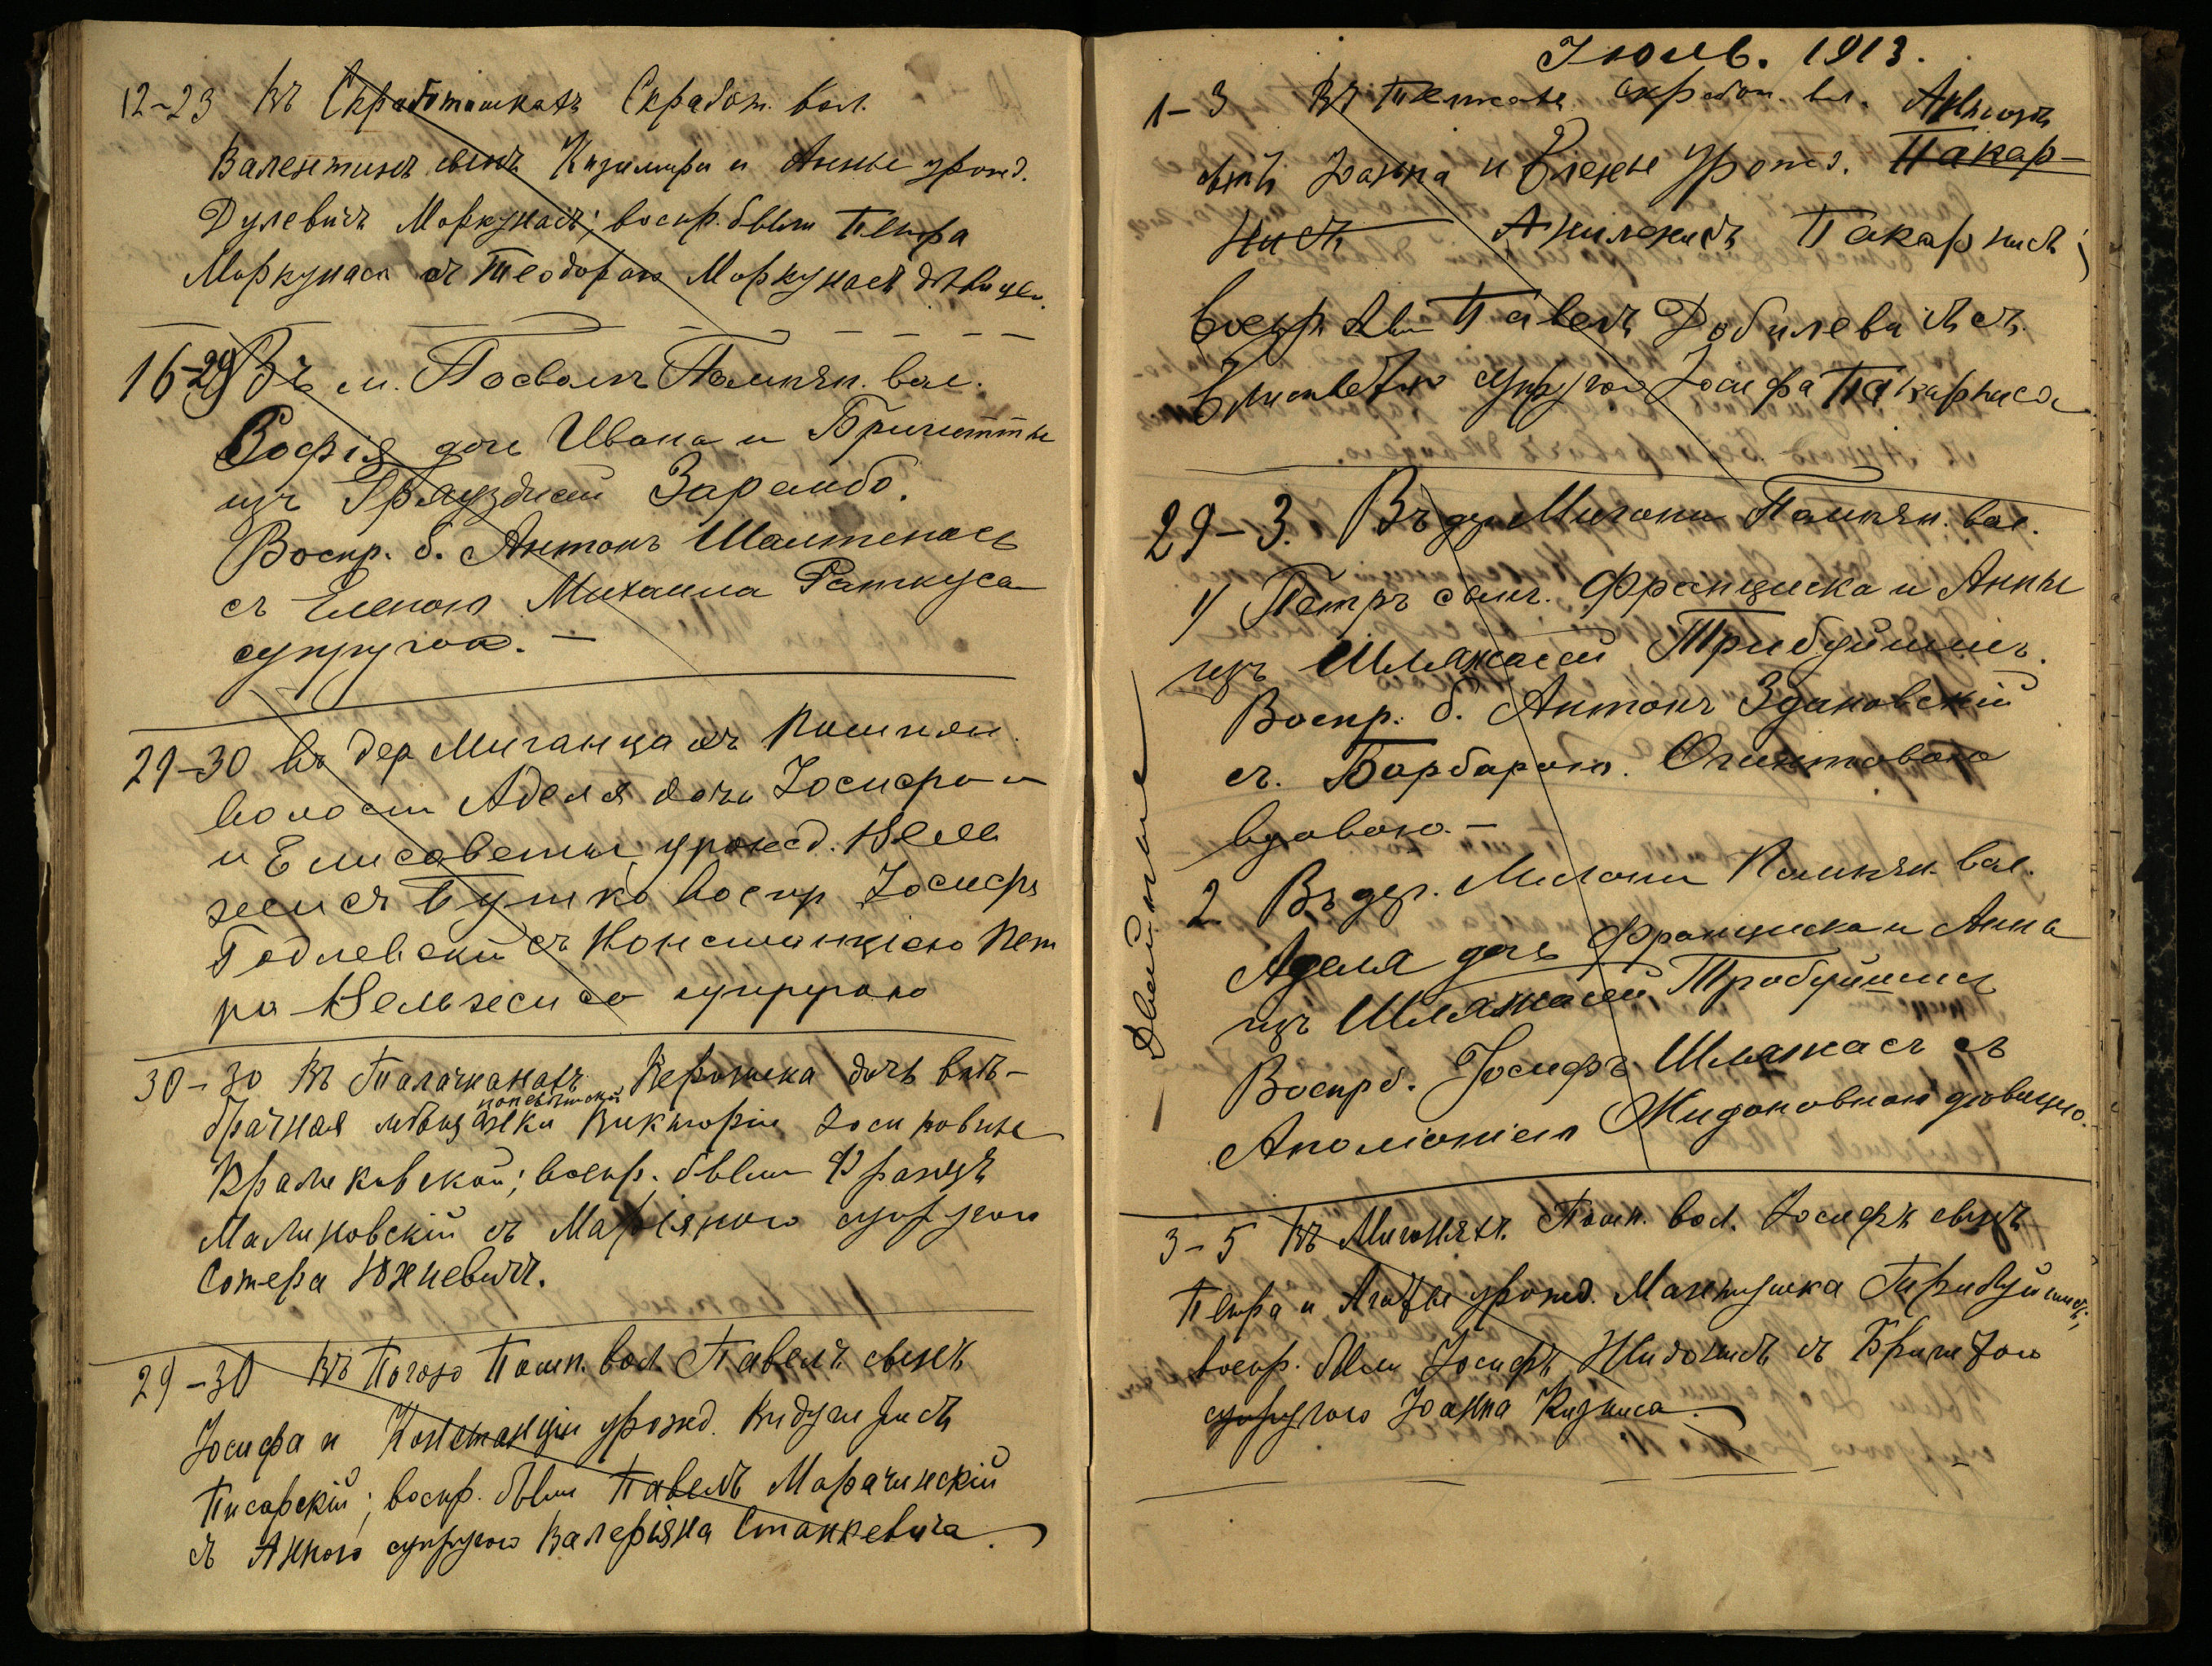 12-23 Въ Скработишкахъ Скработ. вол.
Валентинъ сынъ Казимира и Анны урожд.
Дулевичъ Моркунасъ; воспр. были Петра
Моркунаса съ Теодорою Моркунасъ дѣвицею.
16-29 Въ м. Посволь Помнян. вол.
Софія дочь Ивана и Бригитты
изъ Грауздисей Зарембо.
Воспр. б. Антонъ Шалтенасъ
съ Еленою Михаила Раткуса
супругой. —
29-30 въ дер Миганцахъ Помпян.
волости Аделя дочь Іосифа и
и Елисаветы урожд.
Бушко воспр Іосифъ
Годлевскій съ Констанціею Пет
ра супругою
30-30 Въ Талачканахъ Вероника дочь внѣ-
брачная мѣщанки Викторіи
воспр. были Францъ
Малиновскій съ Маріяною супругою
Сотера Юхневичъ.
29-30 Въ Помп. вол. Павелъ сынъ
Іосифа и Констанціи урожд.
Писарскій; воспр. были Павелъ Марачинскій
съ Анною супругою Валеріяна Станкевича.
Іюль. 1913.
1-3 Въ Скработ. вол.
сынъ Іоанна и Елены урожд. Пакар-
нисъ Пакарнисъ;
Воспр. были Павелъ Добилевичъ съ
Елисаветою супругою Іосифа Пакарниса
29-3. Въ дер Мигони Помпян. вол.
1) Петръ сынъ Франциска и Анны
изъ Шляжасей Трибуйшисъ.
Воспр. б. Антонъ Здановскій
съ Барбарою
вдовою. —
2 Въ дер. Мигони Помпян. вол.
Аделя дочь Франциска и Анна
изъ Шляжасей Трибуйшисъ
Воспр б. Іосифъ Шляжасъ съ
Аполіоніею Жидоновною дѣвицею.
Двойные
3-5 Въ Мигоняхъ Помп. вол. Іосифъ сынъ
Петра и Агаты урожд. Мажтушка Трибуйшисъ;
воспр. были Іосифъ Жидонисъ съ Бригитою
супругою Іоанна Кизниса.